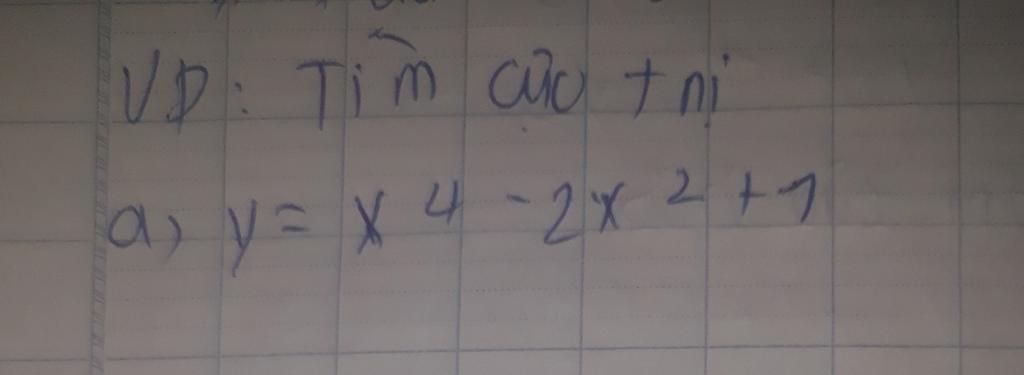 VD: Tìm cực trị
a, y = x^4 - 2x^2 + 1